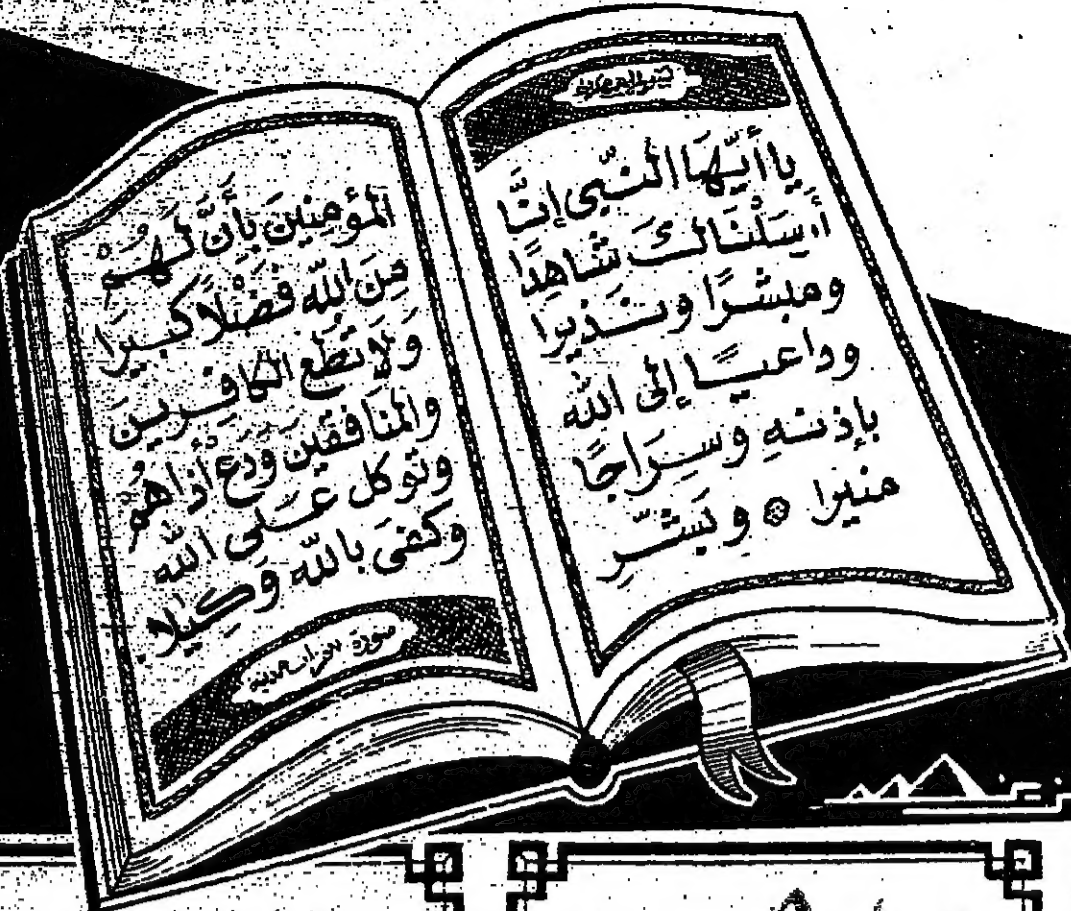 يا أيّهَا النّبيّ إنّا
أرسَلْنَاكَ شَاهِدًا
ومبشرًا ونذيرا
وداعيًا إلى الله
بإذنهِ وسِرَاجًا
منيرا وبَشّرِ
المؤمِنِينَ بأنَّ لهُمْ
مِنَ اللهِ فَضْلًا كبيرًا
وَلاَ تُطِع الكافِرينَ
والمنَافقينَ وَدَع أذاهُمْ
وتوكل عَلى الله
وكفى باللهِ وَكِيلا
سورة الاحزاب مدنية